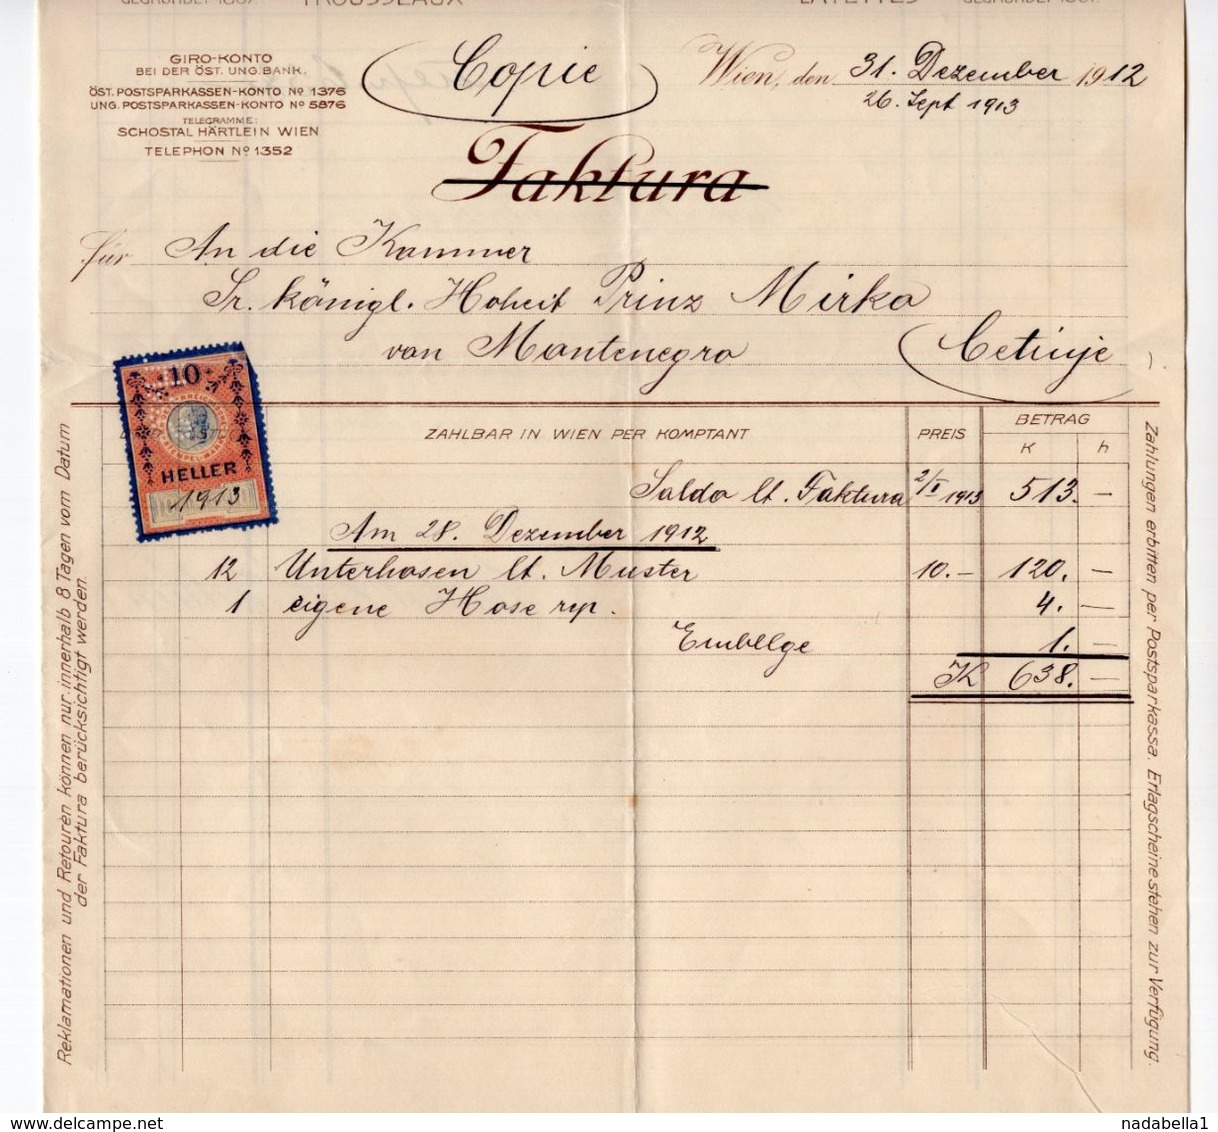 GEGRÜNDET 1867. TROUSSEAUX LAYETTES GEGRÜNDET 1867.
GIRO-KONTO
BEI DER ÖST. UNG. BANK.
ÖST. POSTSPARKASSEN-KONTO Nº 1376
UNG. POSTSPARKASSEN-KONTO Nº 5876
TELEGRAMME:
SCHOSTAL HÄRTLEIN WIEN
TELEPHON Nº 1352
Copie
Wien, den 31. Dezember 1912
26. Sept 1913
Faktura
für An die Kammer
Sr. königl. Hoheit Prinz Mirko
von Montenegro Cetinje
10
HELLER
1913
ZAHLBAR IN WIEN PER KOMPTANT PREIS BETRAG
K h
Saldo lt. Faktura 2/I 1913 513. —
Am 28. Dezember 1912
12 Unterhosen lt. Muster 10.— 120. —
1 eigene Hose rep. 4. —
Emballage 1. —
K 638. —
Reklamationen und Retouren können nur innerhalb 8 Tagen vom Datum
der Faktura berücksichtigt werden.
Zahlungen erbitten per Postsparkassa. Erlagscheine stehen zur Verfügung.
nadabella1